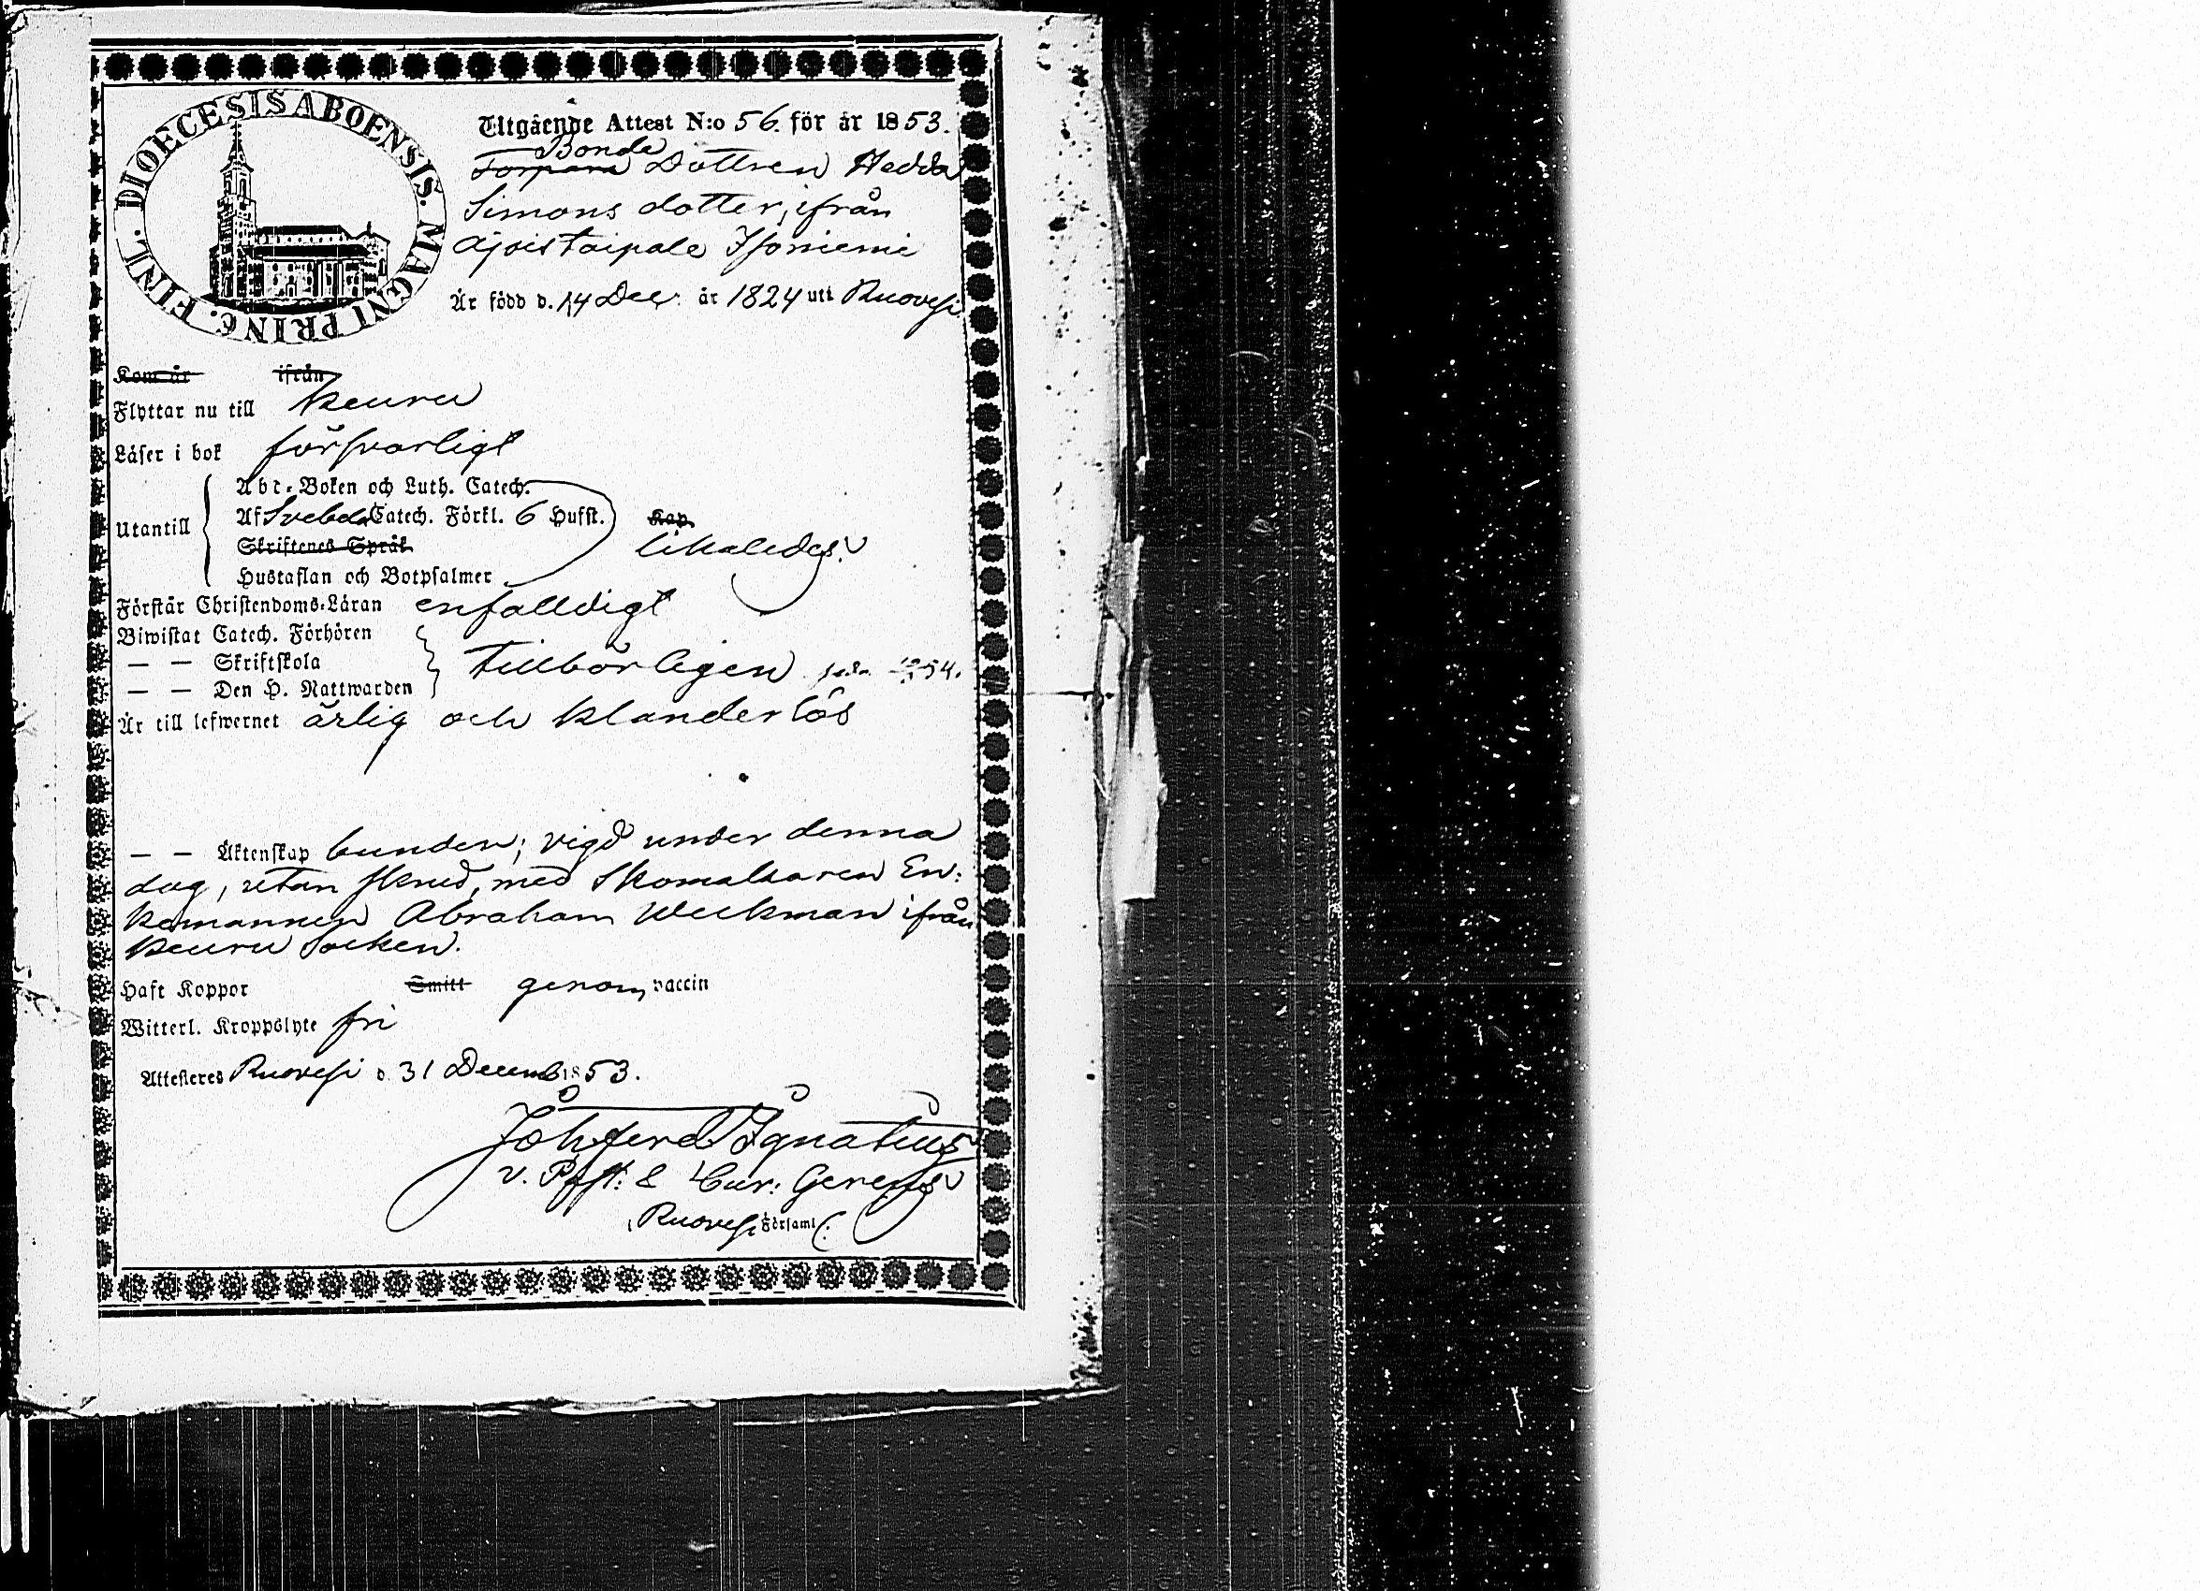 DIOECESIS ABOENSIS. MAGNI PRINC. FINL.
Utgående Attest N:o 56. för år 1853.
Bonde
Torpare Dottren Hedda
Simons dotter, ifrån
Ajostaipale Isoniemi
Är född d. 14 Dec. år 1824 uti Ruovesi
Kom år ifrån
Flyttar nu till Keuru
Läser i bok försvarligt
Abc-Boken och Luth. Catech.
Utantill Af Svebel. Catech. Förkl. 6 Hufst. Kap.
Skriftenes Språk likaledes.
Hustaflan och Botpsalmer
Förstår Christendoms-Läran enfalldigt
Biwistat Catech. Förhören
— — Skriftskola tillbörligen 54.
— — Den H. Nattwarden
Är till lefwernet ärlig och klanderlös
— — Äktenskap bunden; vigd under denna
dag, utan skrud, med Skomakaren En:
komannen Abraham Weckman ifrån
Keuru Socken.
Haft Koppor Smitt genom vaccin
Witterl. Kroppslyte fri
Attesteras Ruovesi d. 31 Decemb 1853.
Joh Ferd Ignatius
v. Past: & Cur: Gerens
i Ruovesi Församl.